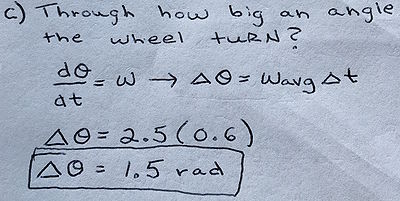 c) Through how big an angle
the wheel tuRN?
dθ/dt = ω → Δθ = ωavg Δt
Δθ = 2.5(0.6)
Δθ = 1.5 rad